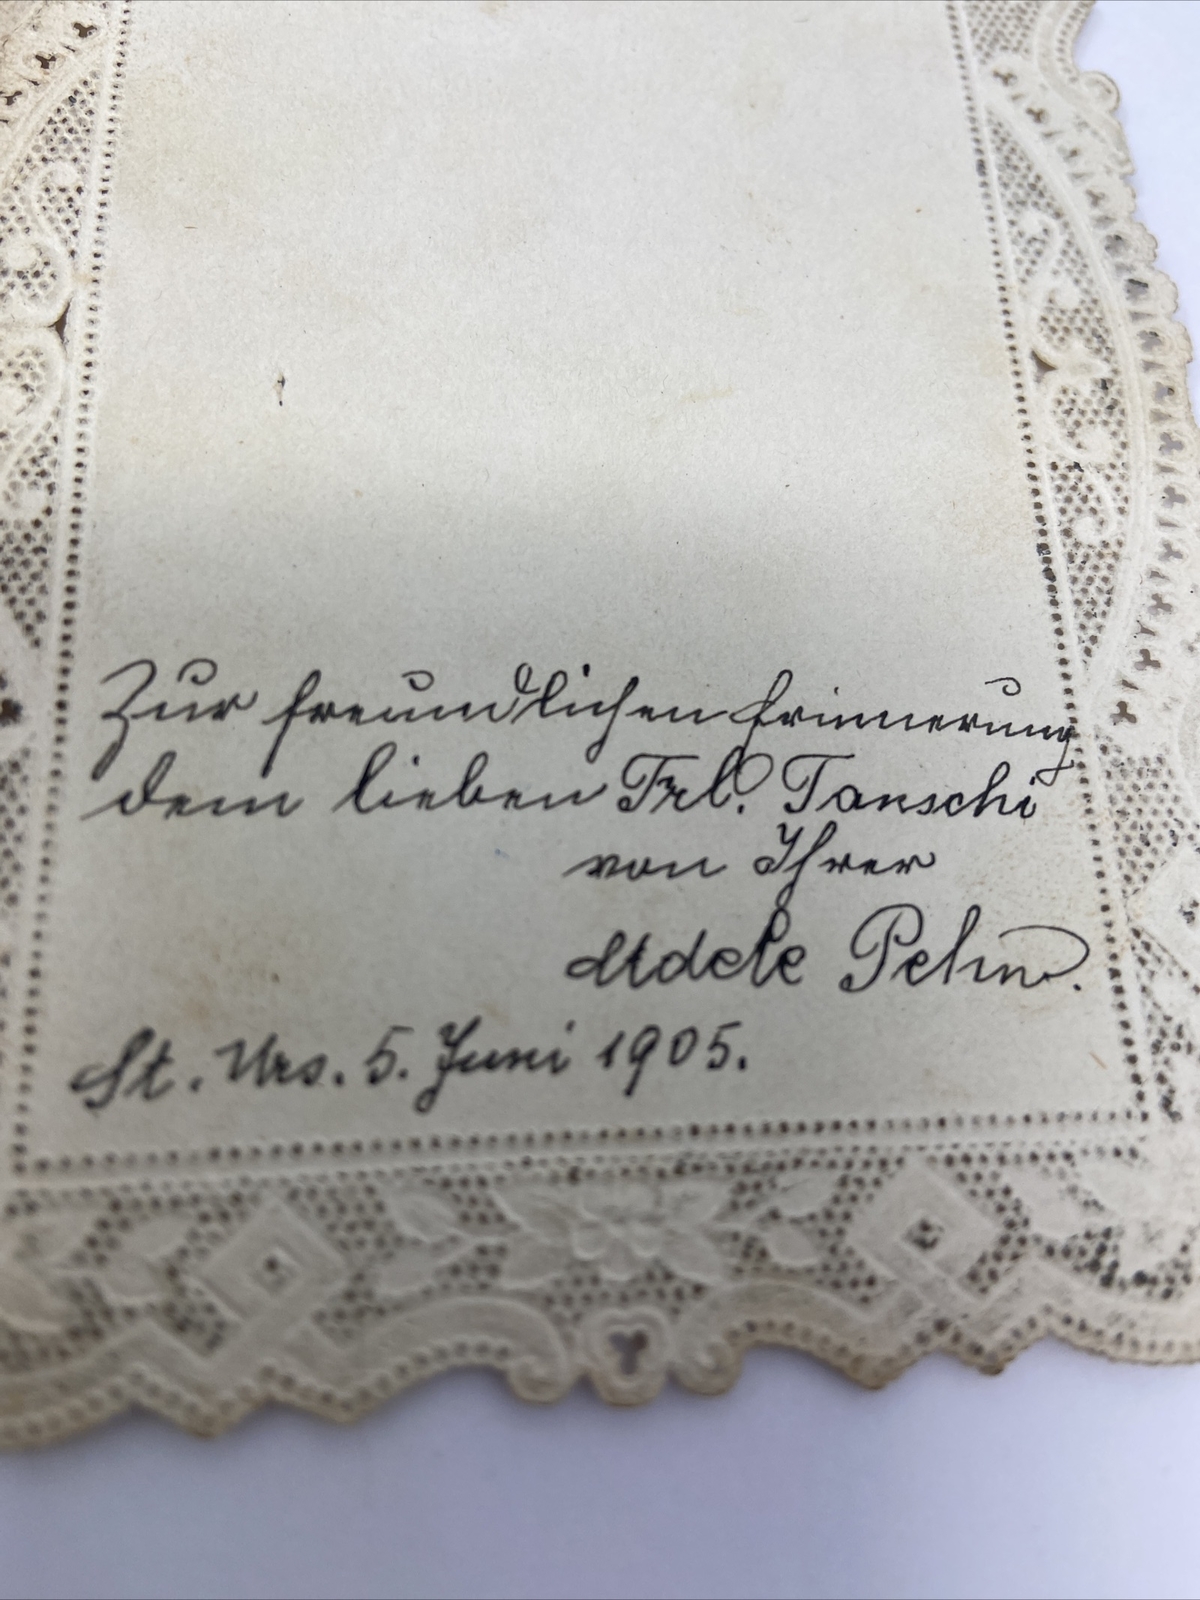 Zur freundlichen Erinnerung
dem lieben Frl. Tanschi
von Ihrer
Adele Pehm.
St. Urs. 5. Juni 1905.